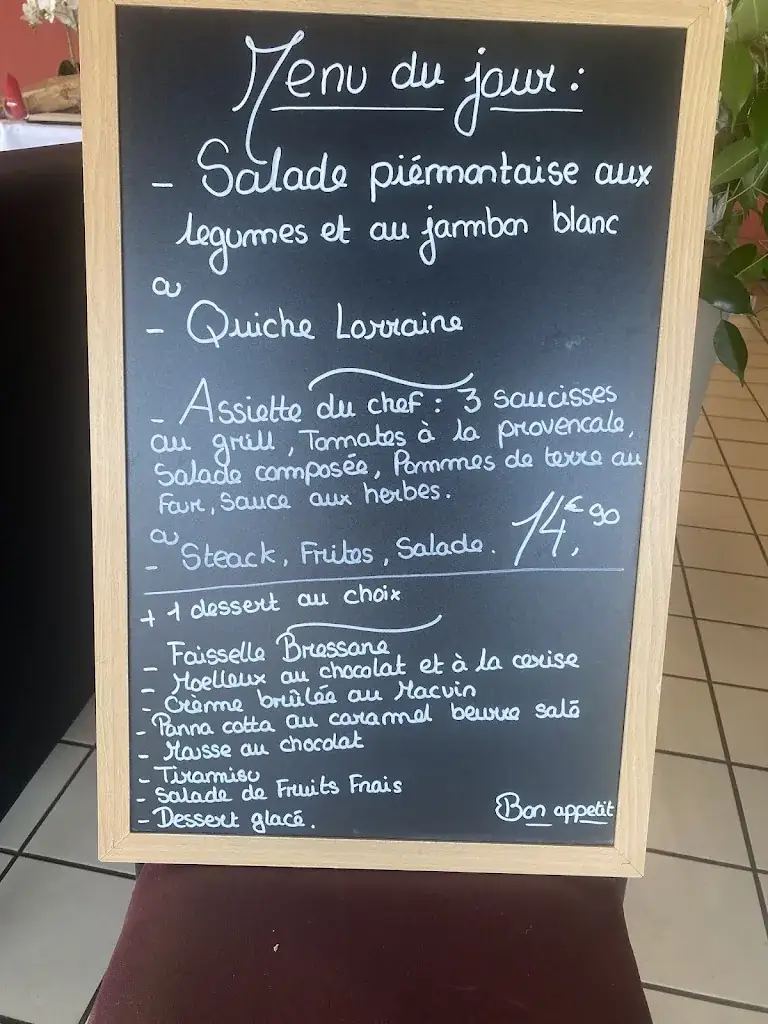 Menu du jour :
- Salade piémontaise aux
légumes et au jambon blanc
ou
- Quiche Lorraine
- Assiette du chef : 3 saucisses
au grill, Tomates à la provencale,
Salade composée, Pommes de terre au
Four, Sauce aux herbes.
ou
- Steack, Frites, Salade. 14,€90
+ 1 dessert au choix
- Faisselle Bressane
- Moelleux au chocolat et à la cerise
- Crème brûlée au Macvin
- Panna cotta au caramel beurre salé
- Mousse au chocolat
- Tiramisu
- Salade de Fruits Frais
- Dessert glacé.
Bon appetit